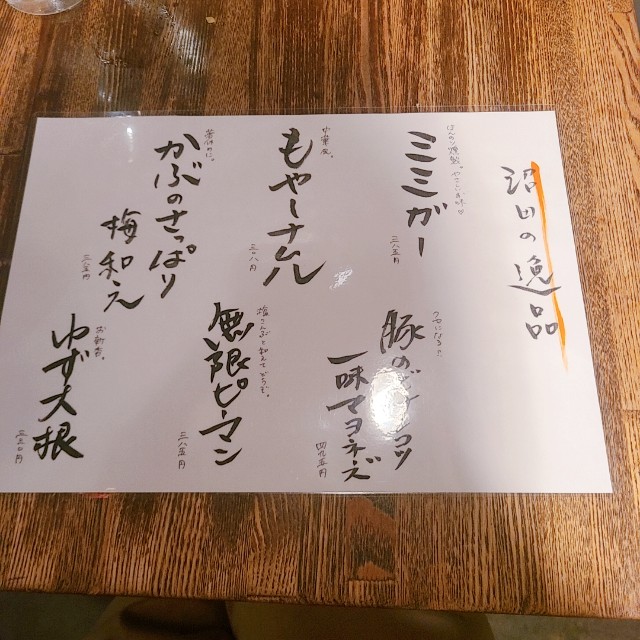 沼田の逸品
ほんのり燻製。やさしいお味♡
ミミガー
三八五円
クセになる!!
豚のガツ
一味マヨネーズ
四九五円
中華風。
もやしナムル
三〇八円
塩こんぶと和えてどうぞ。
無限ピーマン
三八五円
箸休めに。
かぶのさっぱり
梅和え
三八五円
お新香。
ゆず大根
三三〇円